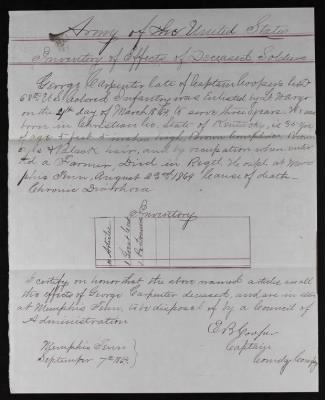 Army of the United States
Inventory of Effects of Deceased Soldiers
George Carpenter late of Captain Cooper's
Colored Infantry was enlisted
on the day of March 1864 to serve three years He was
born in Christian Co. State of Kentucky, is
years 5 feet Brown complexion
& Black hair, and by occupation when
a Farmer Died in Regt Hospl at Mem
phis Tenn, August 23rd 1864 Cause of death
Chronic Diarhoea
Inventory
I certify on honor that the above named articles are all
the effects of George Carpenter deceased, and are in
at Memphis Tenn, to be disposed of by a Council of
Administration
E B Cooper
Captain
Comdg Compy
Memphis Tenn
September 7th